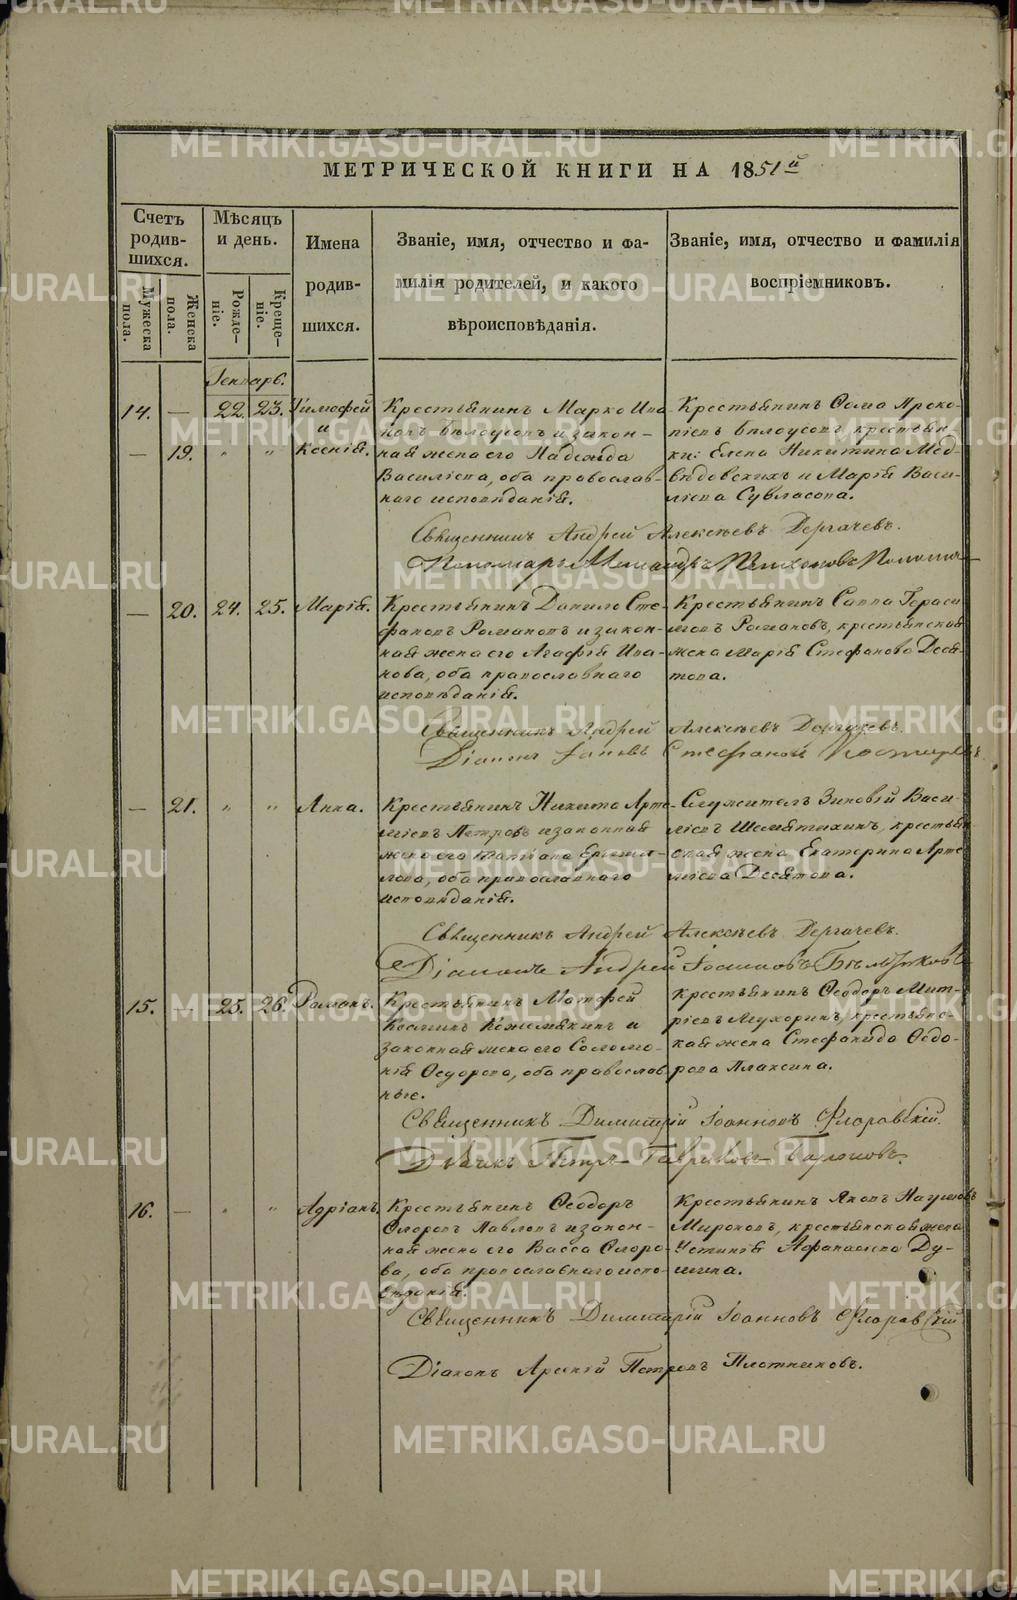 МЕТРИЧЕСКОЙ КНИГИ НА 1851й
Счетъ родив-шихся.
Мужеска пола.
Женска пола.
Мѣсяцъ и день.
Рожде-ніе.
Креще-ніе.
Имена родив-шихся.
Званіе, имя, отчество и фа-
милія родителей, и какого
вѣроисповѣданія.
Званіе, имя, отчество и фамилія
воспріемниковъ.
Генварь.
14. — 22. 23. Тимофей
и
— 19. " " Ксенія.
Крестьянинъ Марко Ива-
новъ Бѣлоусовъ и закон-
ная жена его Надежда
Василіева, оба православ-
наго исповѣданія.
Крестьянинъ Ѳома Проко-
піевъ Бѣлоусовъ, крестьян-
ки: Елена Никитина Мед-
вѣдовскихъ и Марія Васи-
ліева
Священникъ Андрей Алексѣевъ Дергачевъ.
Пономарь
— 20. 24. 25. Марія.
Крестьянинъ Данило Сте-
фановъ Романовъ и закон-
ная жена его Агафія Ива-
нова, оба православнаго
исповѣданія.
Крестьянинъ Савва Гераси-
мовъ Романовъ, крестьянская
жена Марія Стефанова Деся-
това.
Священникъ Андрей Алексѣевъ Дергачевъ.
Діаконъ Стефановъ
— 21. " " Анна.
Крестьянинъ Никита Арте-
міевъ Петровъ и законная
жена его Татіана Ермил-
лова, оба православнаго
исповѣданія.
Служитель Зиновій Васи-
ліевъ Шемятихинъ, крестьян-
ская жена Екатерина Арте-
міева Десятова.
Священникъ Андрей Алексѣевъ Дергачевъ.
Діаконъ Андрей Іоанновъ
15. — 25. 26. Романъ.
Крестьянинъ Матфей
Косминъ Кожемякинъ и
законная жена его Соломо-
нія Ѳедорова, оба православ-
ные.
Крестьянинъ Ѳеодоръ Мит-
ріевъ Мухоринъ, крестьянс-
кая жена Стефанида Ѳедо-
рова Плаксина.
Священникъ Димитрій Іоанновъ Флоравскій.
Дьячикъ Петръ Гавриловъ
16. — " " Адріанъ.
Крестьянинъ Ѳеодоръ
Флоровъ Павловъ и закон-
ная жена его Васса Флоро-
ва, оба православнаго испо-
вѣданія.
Крестьянинъ Яковъ Наумовъ
Мироновъ, крестьянская жена
Устинія Афанасіева Ду-
шина.
Священникъ Димитрій Іоанновъ Флоравскій
Діаконъ Арсеній Петровъ Плотниковъ.
METRIKI.GASO-URAL.RU